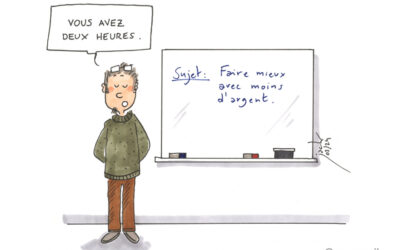 VOUS AVEZ
DEUX HEURES.
Sujet: Faire mieux
avec moins
d'argent.